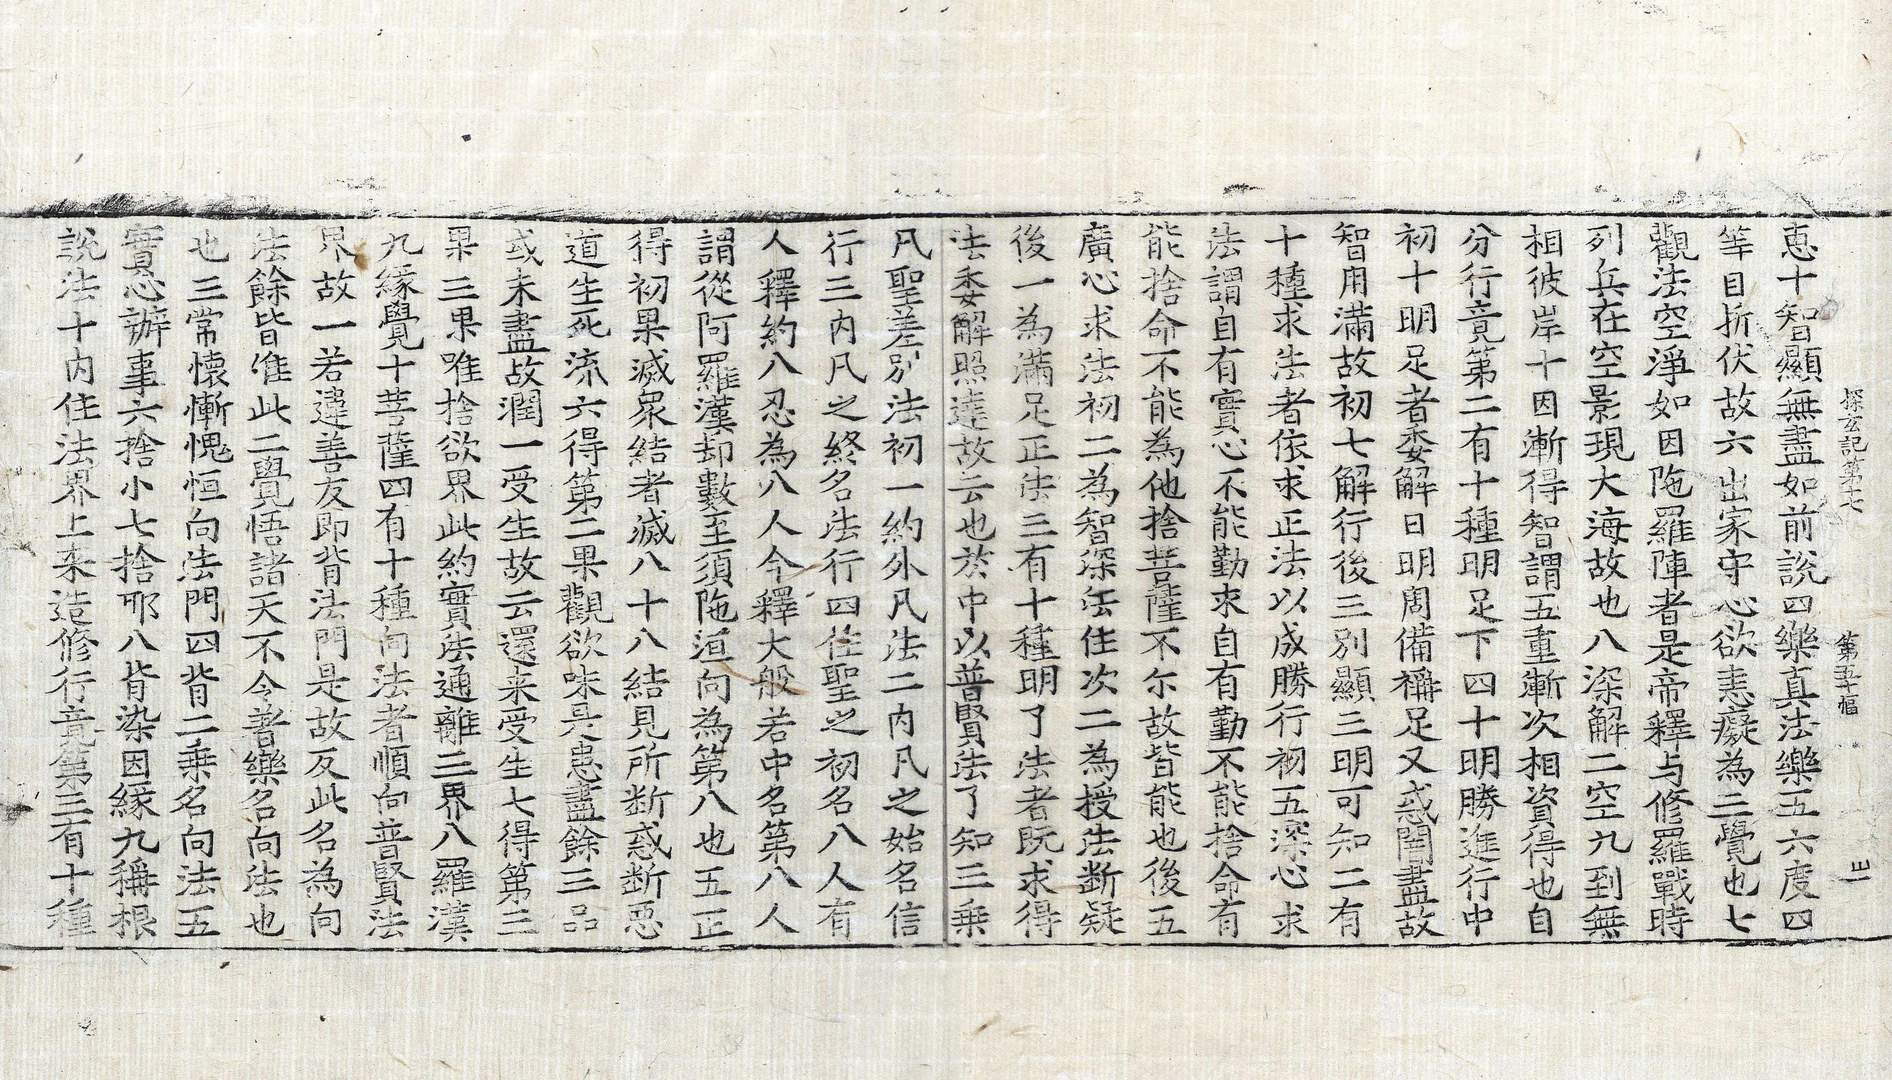 探玄記第十七　第五十幅　昌
恵十智顯無盡如前說四樂真法樂五六度四
等目折伏故六出家守心欲恚癡為二覺也七
觀法空淨如因陁羅陣者是帝釋与修羅戰時
列兵在空影現大海故也八深解二空九到無
相彼岸十因漸得智謂五重漸次相資得也自
分行竟第二有十種明足下四十明勝進行中
初十明足者委解日明周備稱足又惑閏盡故
智用滿故初七解行後三別顯三明可知二有
十種求法者依求正法以成勝行初五深心求
法謂自有實心不能勤求自有勤不能捨命有
能捨命不能為他捨菩薩不尔故皆能也後五
廣心求法初二為智深法住次二為授法断疑
後一為滿足正法三有十種明了法者既求得
法委解照達故云也於中以普賢法了知三乗
凡聖差別法初一約外凡法二內凡之始名信
行三內凡之終名法行四住聖之初名八人有
人釋約八忍為八人今釋大般若中名第八人
謂從阿羅漢却數至須陁洹向為第八也五正
得初果滅眾結者滅八十八結見所断惑断惡
道生死流六得第二果觀欲味是患盡餘三品
或未盡故潤一受生故云還来受生七得第三
果三果唯捨欲界此約實法通離三界八羅漢
九緣覺十菩薩四有十種向法者順向普賢法
界故一若違善友即背法門是故反此名為向
法餘皆准此二覺悟諸天不令著樂名向法也
也三常懷慚愧恒向法門四背二乗名向法五
實心辦事六捨小七捨耶八背染因緣九稱根
說法十內住法界上来造修行竟第三有十種